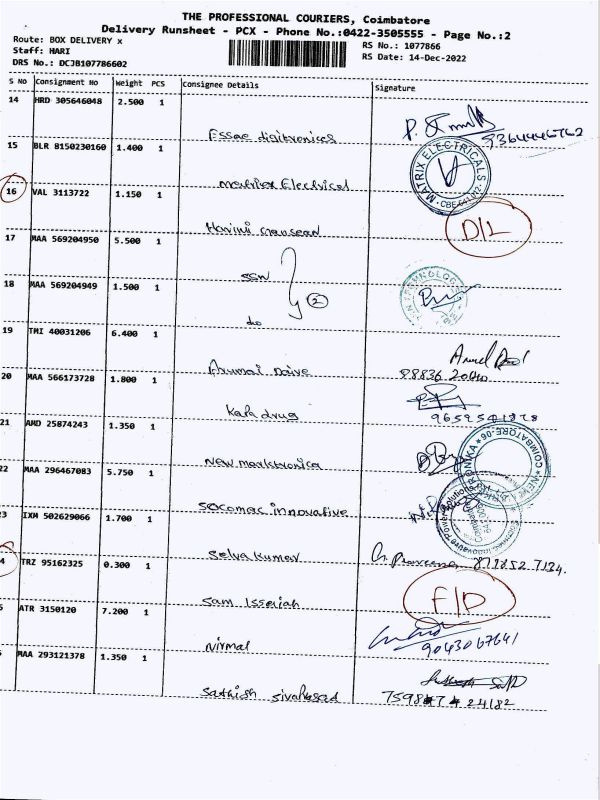 THE PROFESSIONAL COURIERS, Coimbatore
Delivery Runsheet - PCX - Phone No.:0422-3505555 - Page No.:2
Route: BOX DELIVERY x
Staff: HARI
DRS No.: DCJB107786602
RS No.: 1077866
RS Date: 14-Dec-2022
S No Consignment No Weight PCS Consignee Details Signature
14 HRD 305646048 2.500 1
Essae digitronices
9364446762
15 BLR 8150230160 1.400 1
Electrical
MATRIX ELECTRICALS
16 VAL 3113722 1.150 1
Harini
D/L
17 MAA 569204950 5.500 1
SSW
2
18 MAA 569204949 1.500 1
do
19 TMI 40031206 6.400 1
20 MAA 566173728 1.800 1
drug
21 AMD 25874243 1.350 1
New
COIMBATORE
22 MAA 296467083 5.750 1
innovative
23 IXM 502629066 1.700 1
Selva kumar
24 TRZ 95162325 0.300 1
Sam
F/D
ATR 3150120 7.200 1
Nirmal
9043067641
MAA 293121378 1.350 1
Sathish